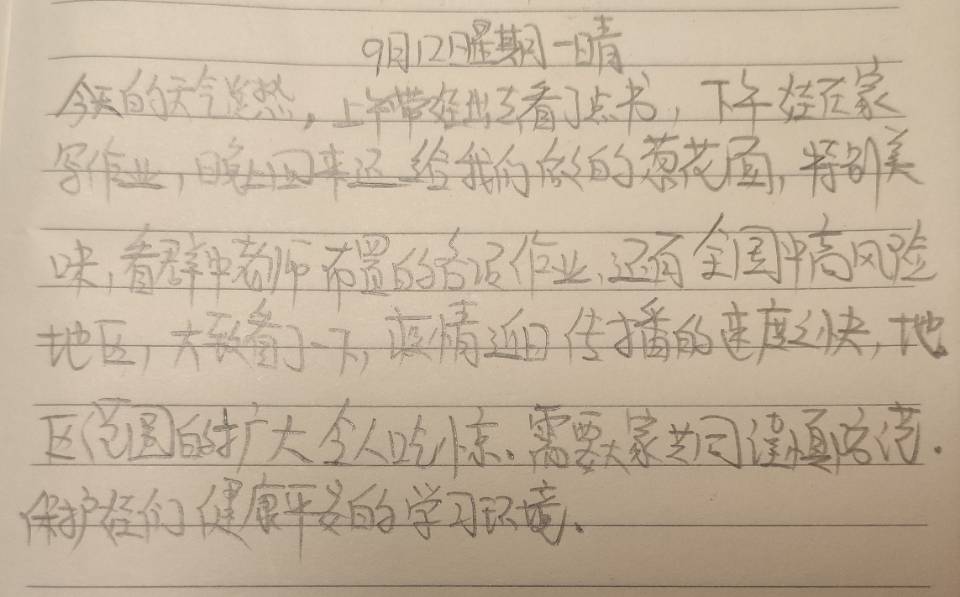 9月12日星期一晴
今天的天气挺热，上午带娃出去看了点书，下午娃在家
写作业，晚上回来还给我们做的葱花面，特别美
味，看群中老师布置的各项作业、还有全国中高风险
地区，大致看了一下，疫情近日传播的速度之快，地
区范围的扩大令人吃惊、需要大家共同谨慎防范.
保护娃们健康平安的学习环境、